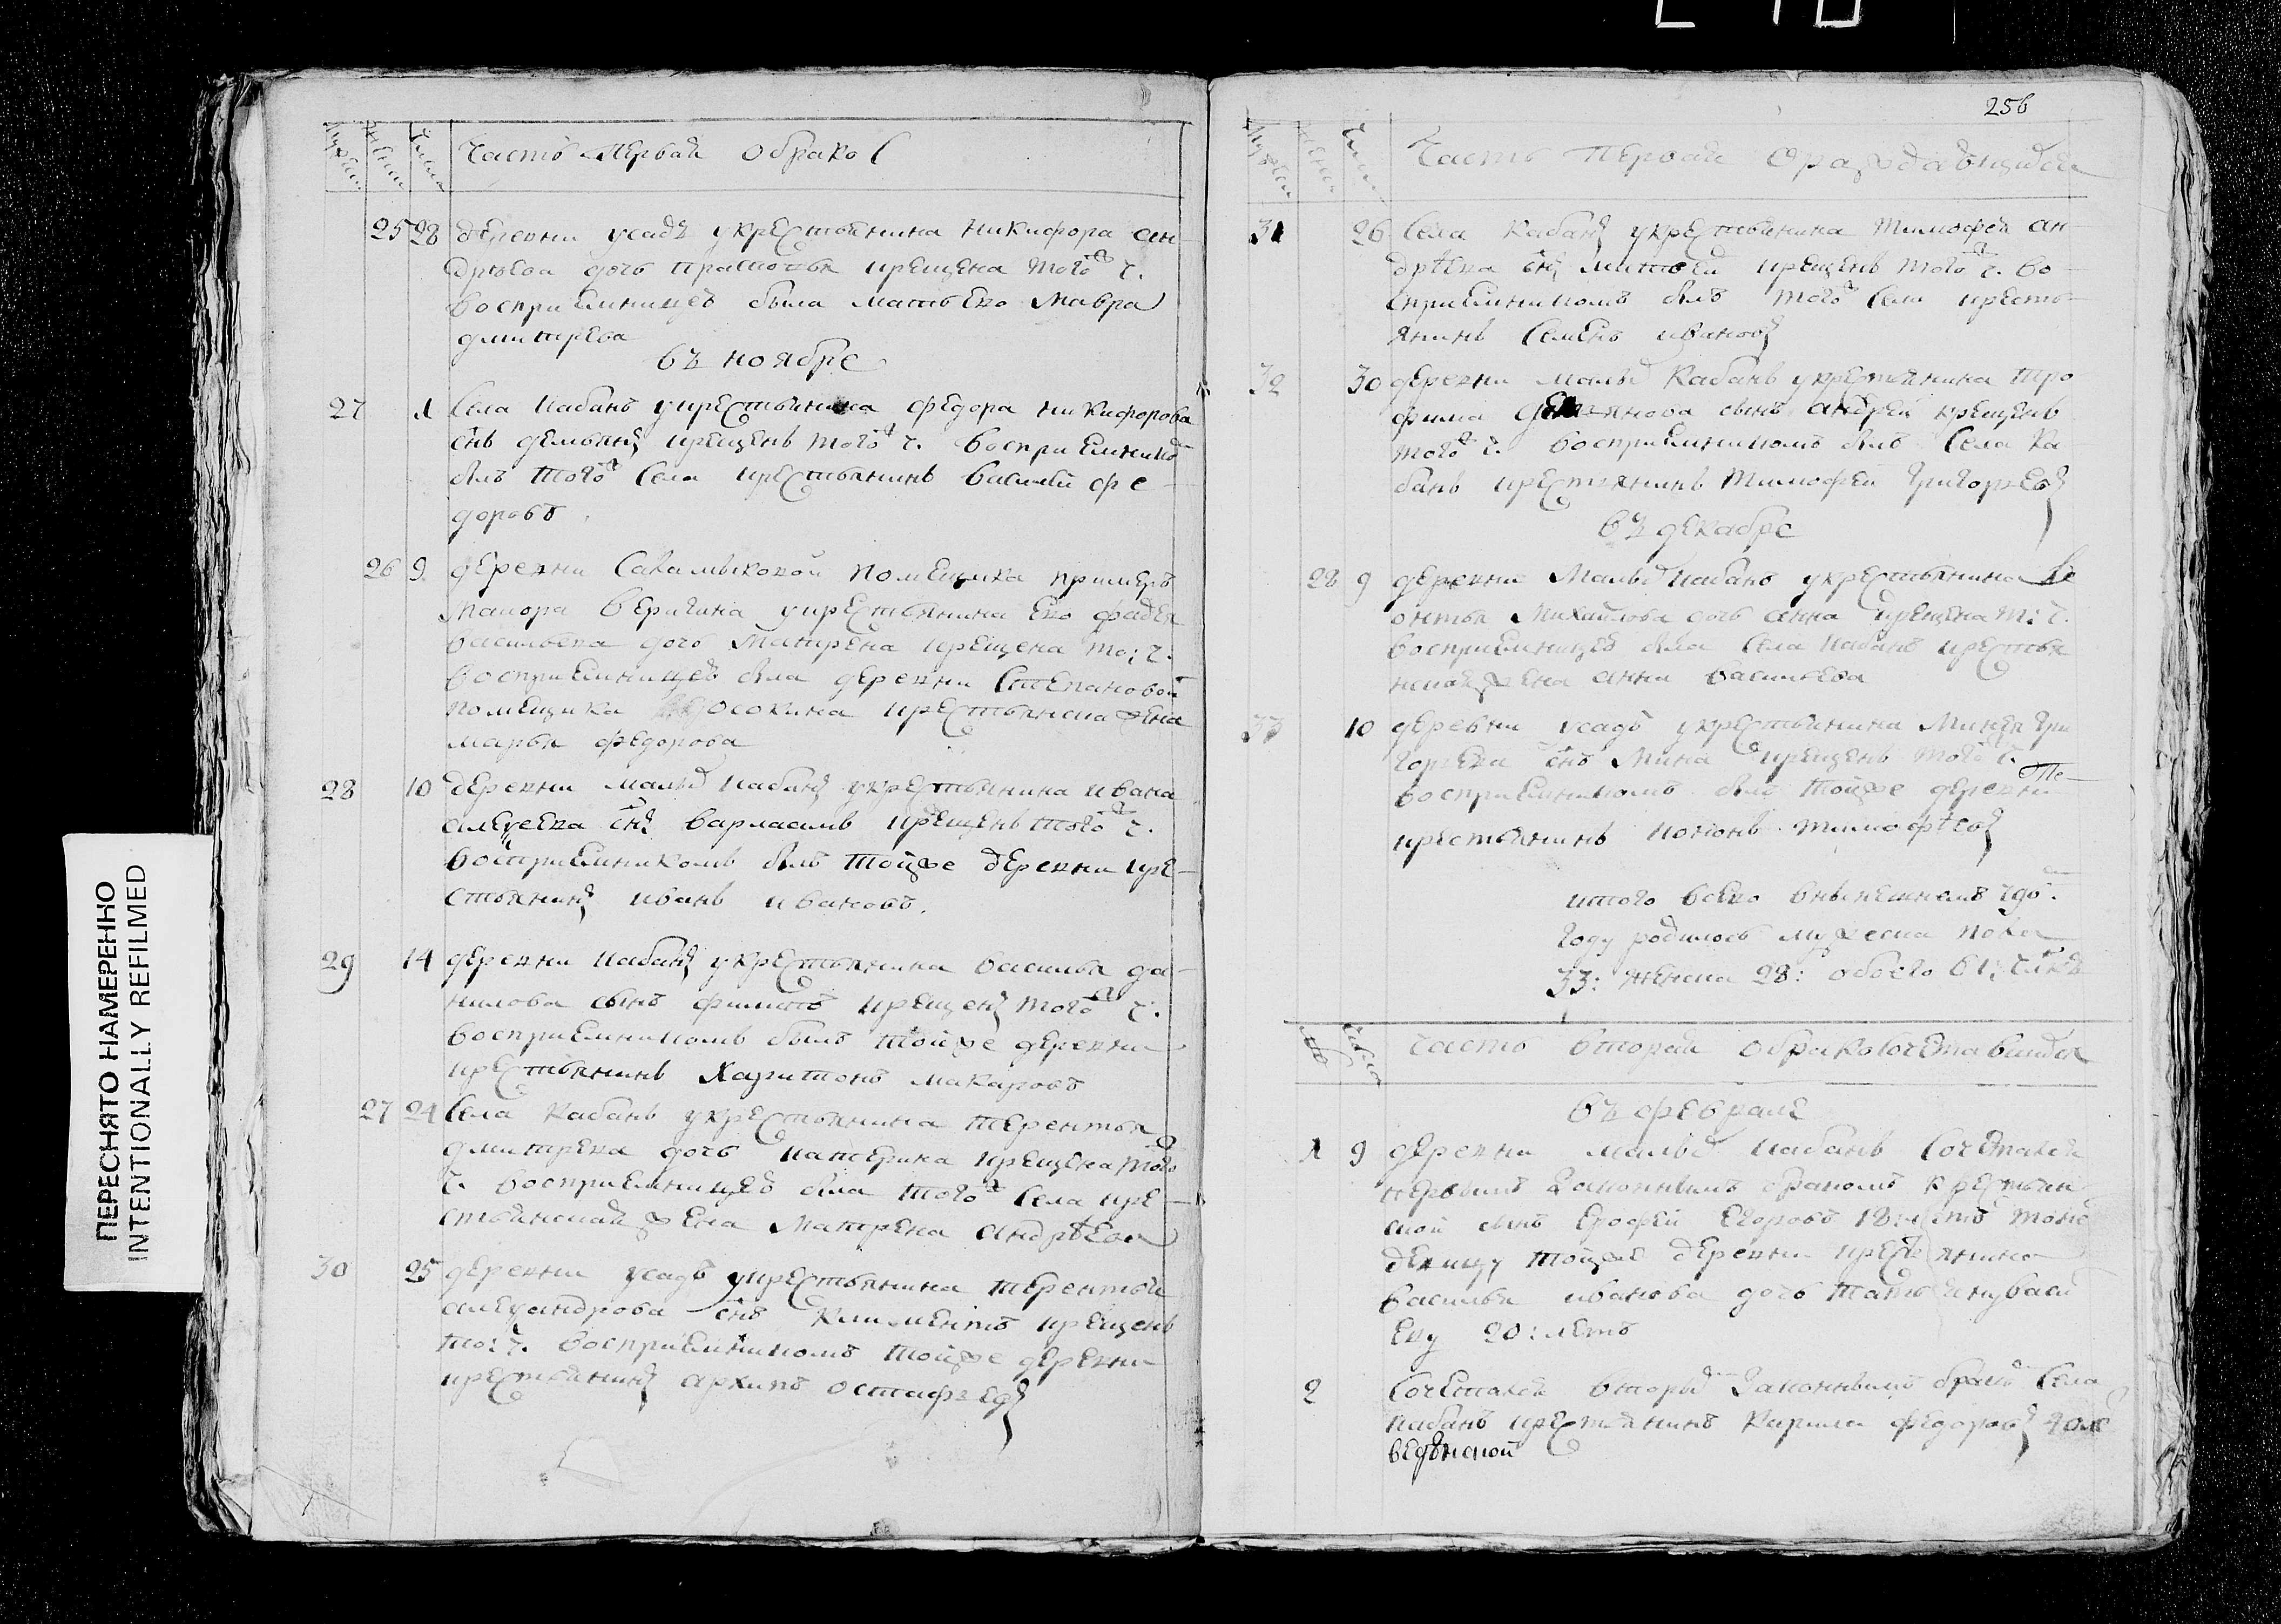 256
Мужеска
Женска
Числа
Часть Первая о брако(
25 28 деревни усадъ у крестьянина никифора ан-
дрѣева дочь прасковья крещена того ж ч.
восприемницей была мать ево мавра
дмитрева
въ ноябре
27 1 Села кабанъ у крестьянина федора никифорова
снъ демьянъ крещенъ того ж ч. восприемником
былъ того ж села крестьянинъ василей фе-
доровъ.
26 9 деревни помещика примеръ
маиора веригина у крестьянина ево фадея
васильева дочь матрена крещена то: ч.
восприемницей была деревни степановой
помещика осокина крестьянска жена
марья федорова
28 10 деревни малых кабанъ у крестьянина ивана
алексеева снъ варлаамъ крещенъ того ж ч.
восприемникомъ былъ тойже деревни кре-
стьянинъ иванъ ивановъ.
29 14 деревни кабанъ у крестьянина василья да-
нилова сынъ филипъ крещенъ того ж ч:
восприемникомъ былъ тойже деревни
крестьянинъ харитонъ макаровъ
27 24 Села кабанъ у крестьянина терентья
дмитрева дочь катерина крещена того ж
ч. восприемницей была того ж села кре-
стьянская жена матрена андрѣева
30 25 деревни усадъ у крестьянина терентья
александрова снъ климентъ крещенъ
то: ч. восприемникомъ тойже деревни
крестьянинъ архипъ остафьевъ
Мужеска
Женска
Числа
Часть первая о раждающихся
31 26 Села кабанъ у крестьянина тимофея ан-
дрѣева снъ матвей крещенъ того ж ч. во-
сприемникомъ былъ того ж села кресть-
янинъ семенъ ивановъ
32 30 деревни малых кабанъ у крестьянина тро
фима сынъ андрей крещенъ
того ж ч. восприемникомъ былъ села ка
банъ крестьянинъ тимофей григорьевъ
въ декабре
28 9 деревни малых кабанъ у крестьянина ле
онтья михайлова дочь анна крещена т: ч.
восприемницей была села кабанъ крестья
нская жена анна васильева
33 10 деревни усадъ у крестьянина гри
горьева снъ мина крещенъ того ж ч.
восприемникомъ былъ тойже деревни
крестьянинъ тимофѣевъ
итого всево в нынешнемъ
году родилось мужеска пола
33: женска 28: обоего 61: члвкъ
Числа
Часть вторая о бракосочетавшихся
въ феврале
1 9 деревни малых кабанъ сочетался
первымъ законнымъ бракомъ крестьян
ской сынъ ерофей егоровъ 18: летъ поня
девицу тойже деревни крестьянина
василья иванова дочь татьяну васи
еву 20: летъ
2 Сочетался вторым законнымъ браком села
кабанъ крестьянинъ кирила федоровъ
ПЕРЕСНЯТО НАМЕРЕННО
INTENTIONALLY REFILMED